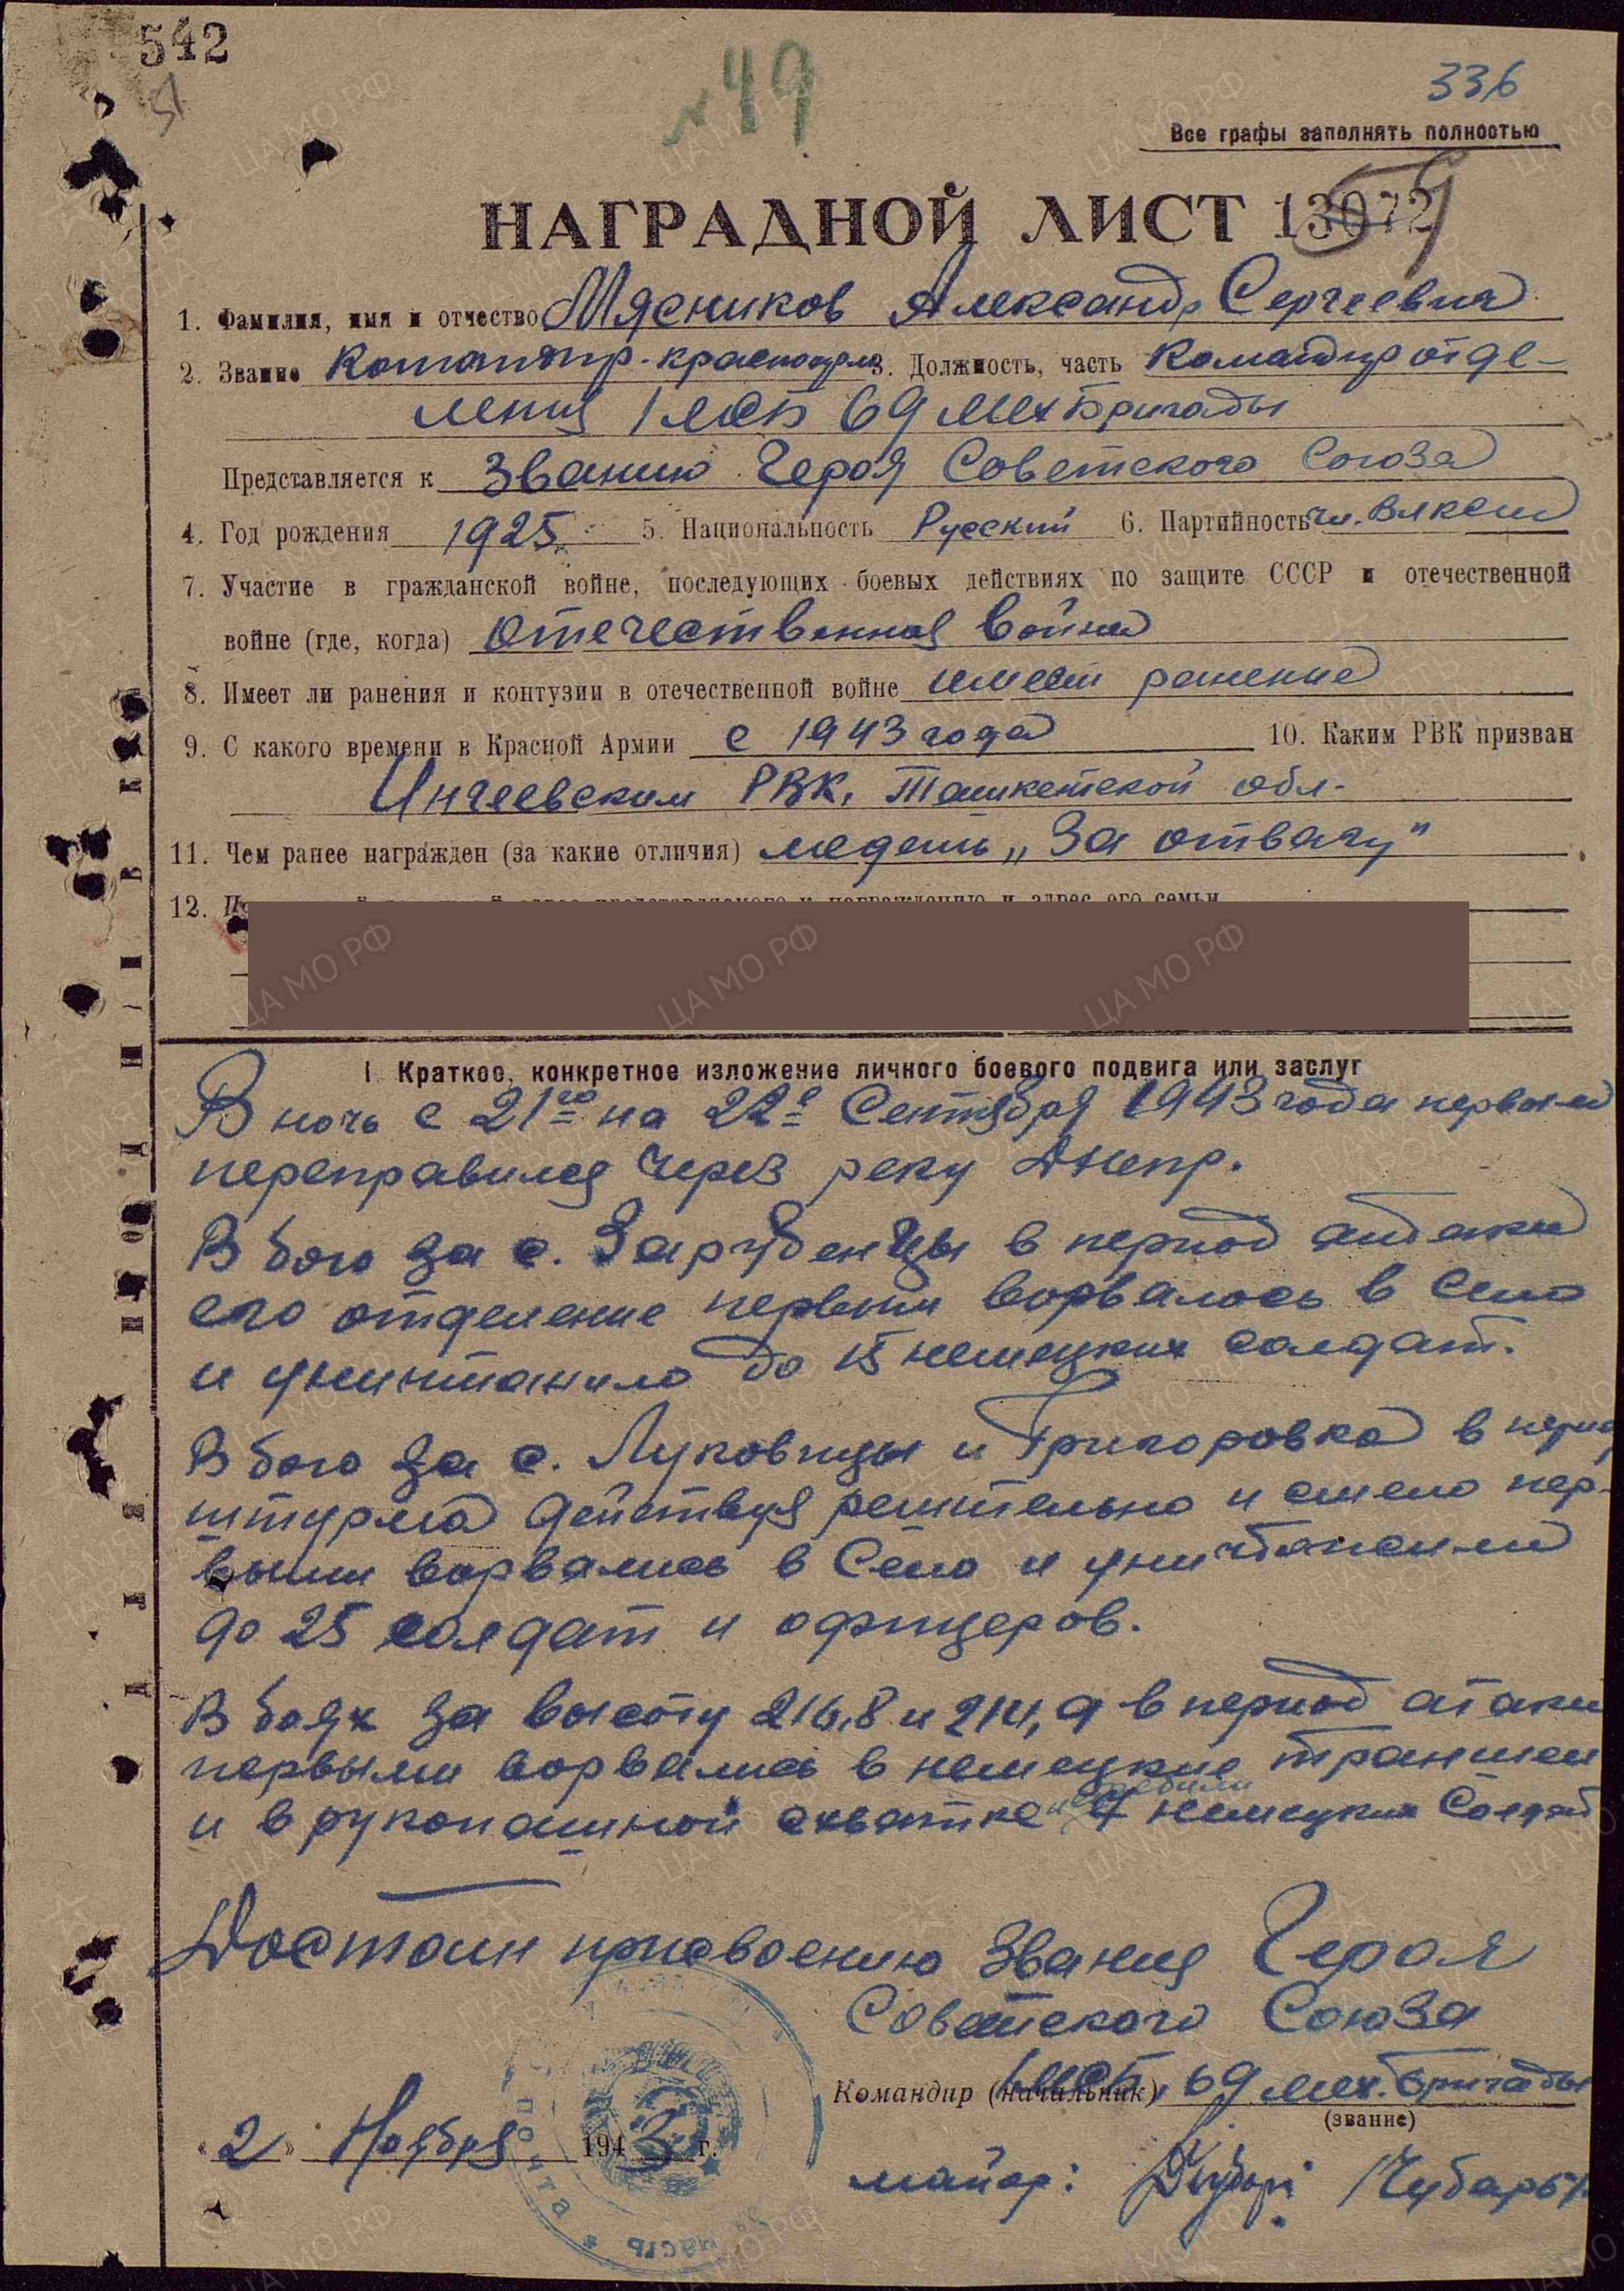 542
№49
336
Все графы заполнять полностью
НАГРАДНОЙ ЛИСТ 13072
1. Фамилия, имя и отчество Мясников Александр Сергеевич
2. Звание 3. Должность, часть Командир отде-
ления 1 МСБ 69 мехбригады
Представляется к Званию Героя Советского Союза
4. Год рождения 1925 5. Национальность Русский 6. Партийность чл. ВЛКСМ
7. Участие в гражданской войне, последующих боевых действиях по защите СССР и отечественной
войне (где, когда) Отечественная война
8. Имеет ли ранения и контузии в отечественной войне имеет ранение
9. С какого времени в Красной Армии с 1943 года 10. Каким РВК призван
РВК, Ташкетской обл.
11. Чем ранее награжден (за какие отличия) медаль „За отвагу"
12.
I. Краткое, конкретное изложение личного боевого подвига или заслуг
В ночь с 21го на 22е Сентября 1943 года первым
переправился через реку Днепр.
В бою за с. Зарубенцы в период атаки
его отделение первым ворвалось в Село
и уничтожило до 15 немецких солдат.
В бою за с. Луковицы и Григоровка в период
штурма действуя решительно и смело пер-
выми ворвались в Село и уничтожили
до 25 солдат и офицеров.
В боях за высоту 216,8 и 214,9 в период атаки
первыми ворвались в немецкие траншеи
и в рукопашной схватке немецких Солдат
Достоин присвоению Звания Героя
Советского Союза
Командир (начальник) 1 МСБ, 69 мех. бригады
(звание)
«2» Ноября 1943 г.
майор: /Чубарь/.
почта * часть
ЦА МО РФ